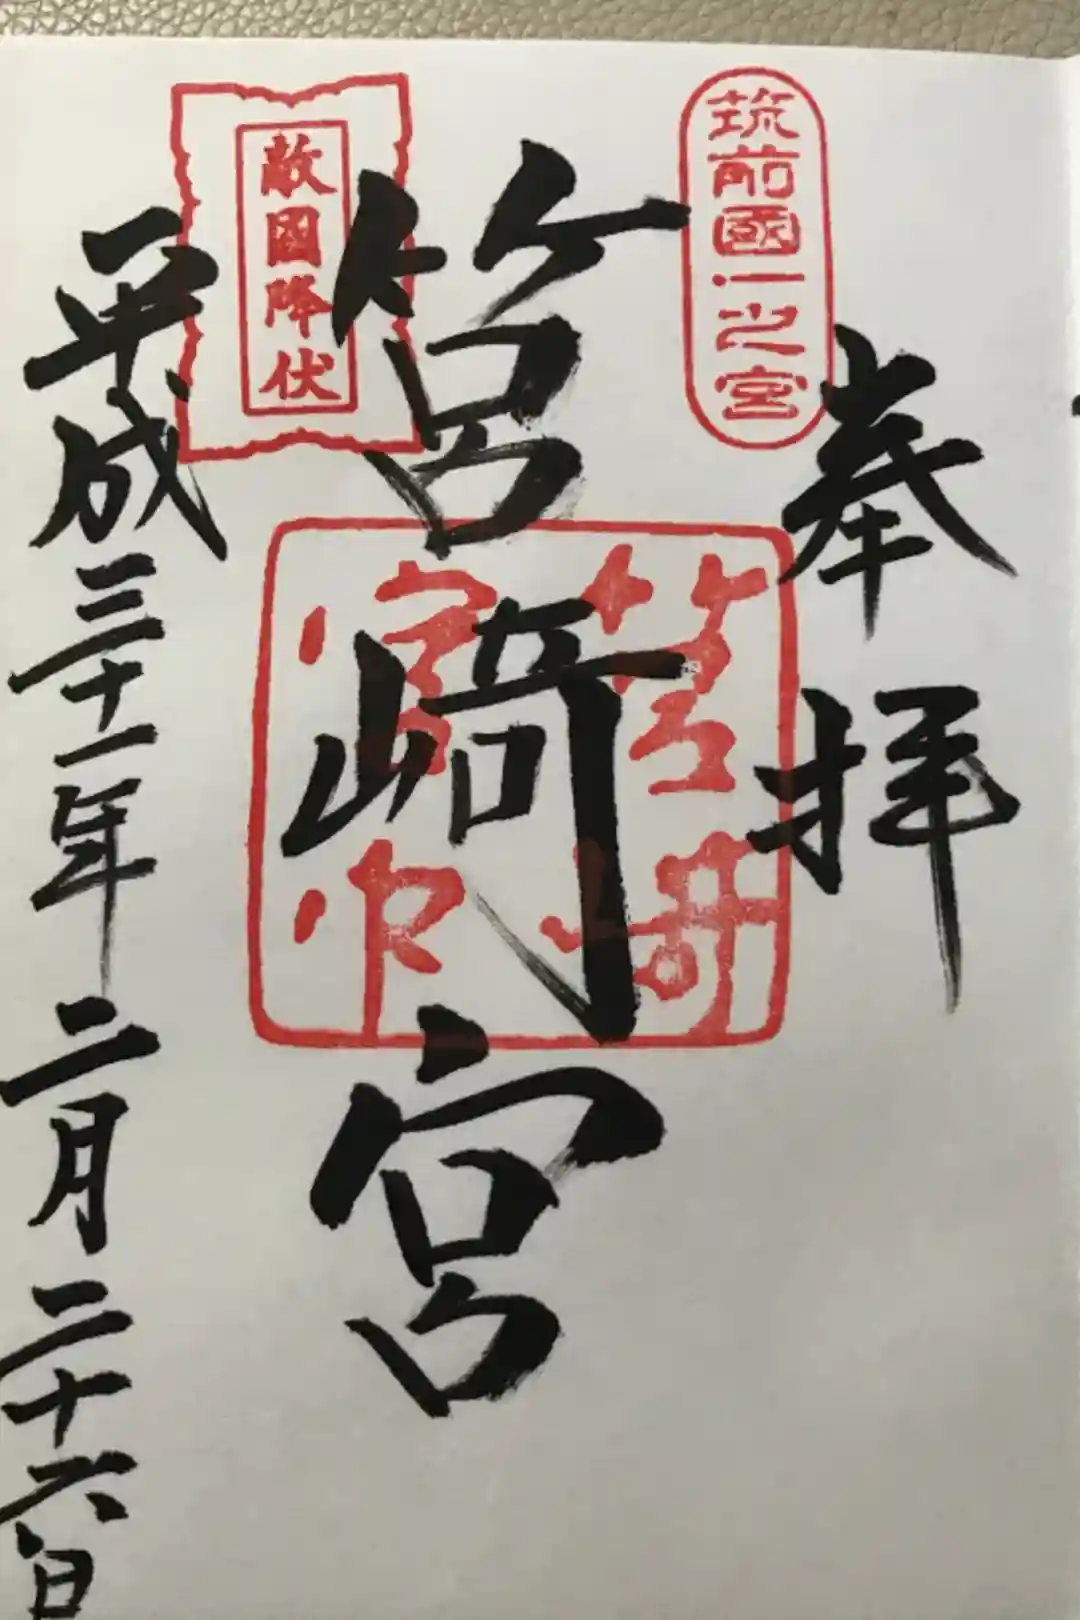 奉拝
筑前國一之宮
筥崎宮
敵國降伏
筥崎宮印
平成三十一年二月二十六日